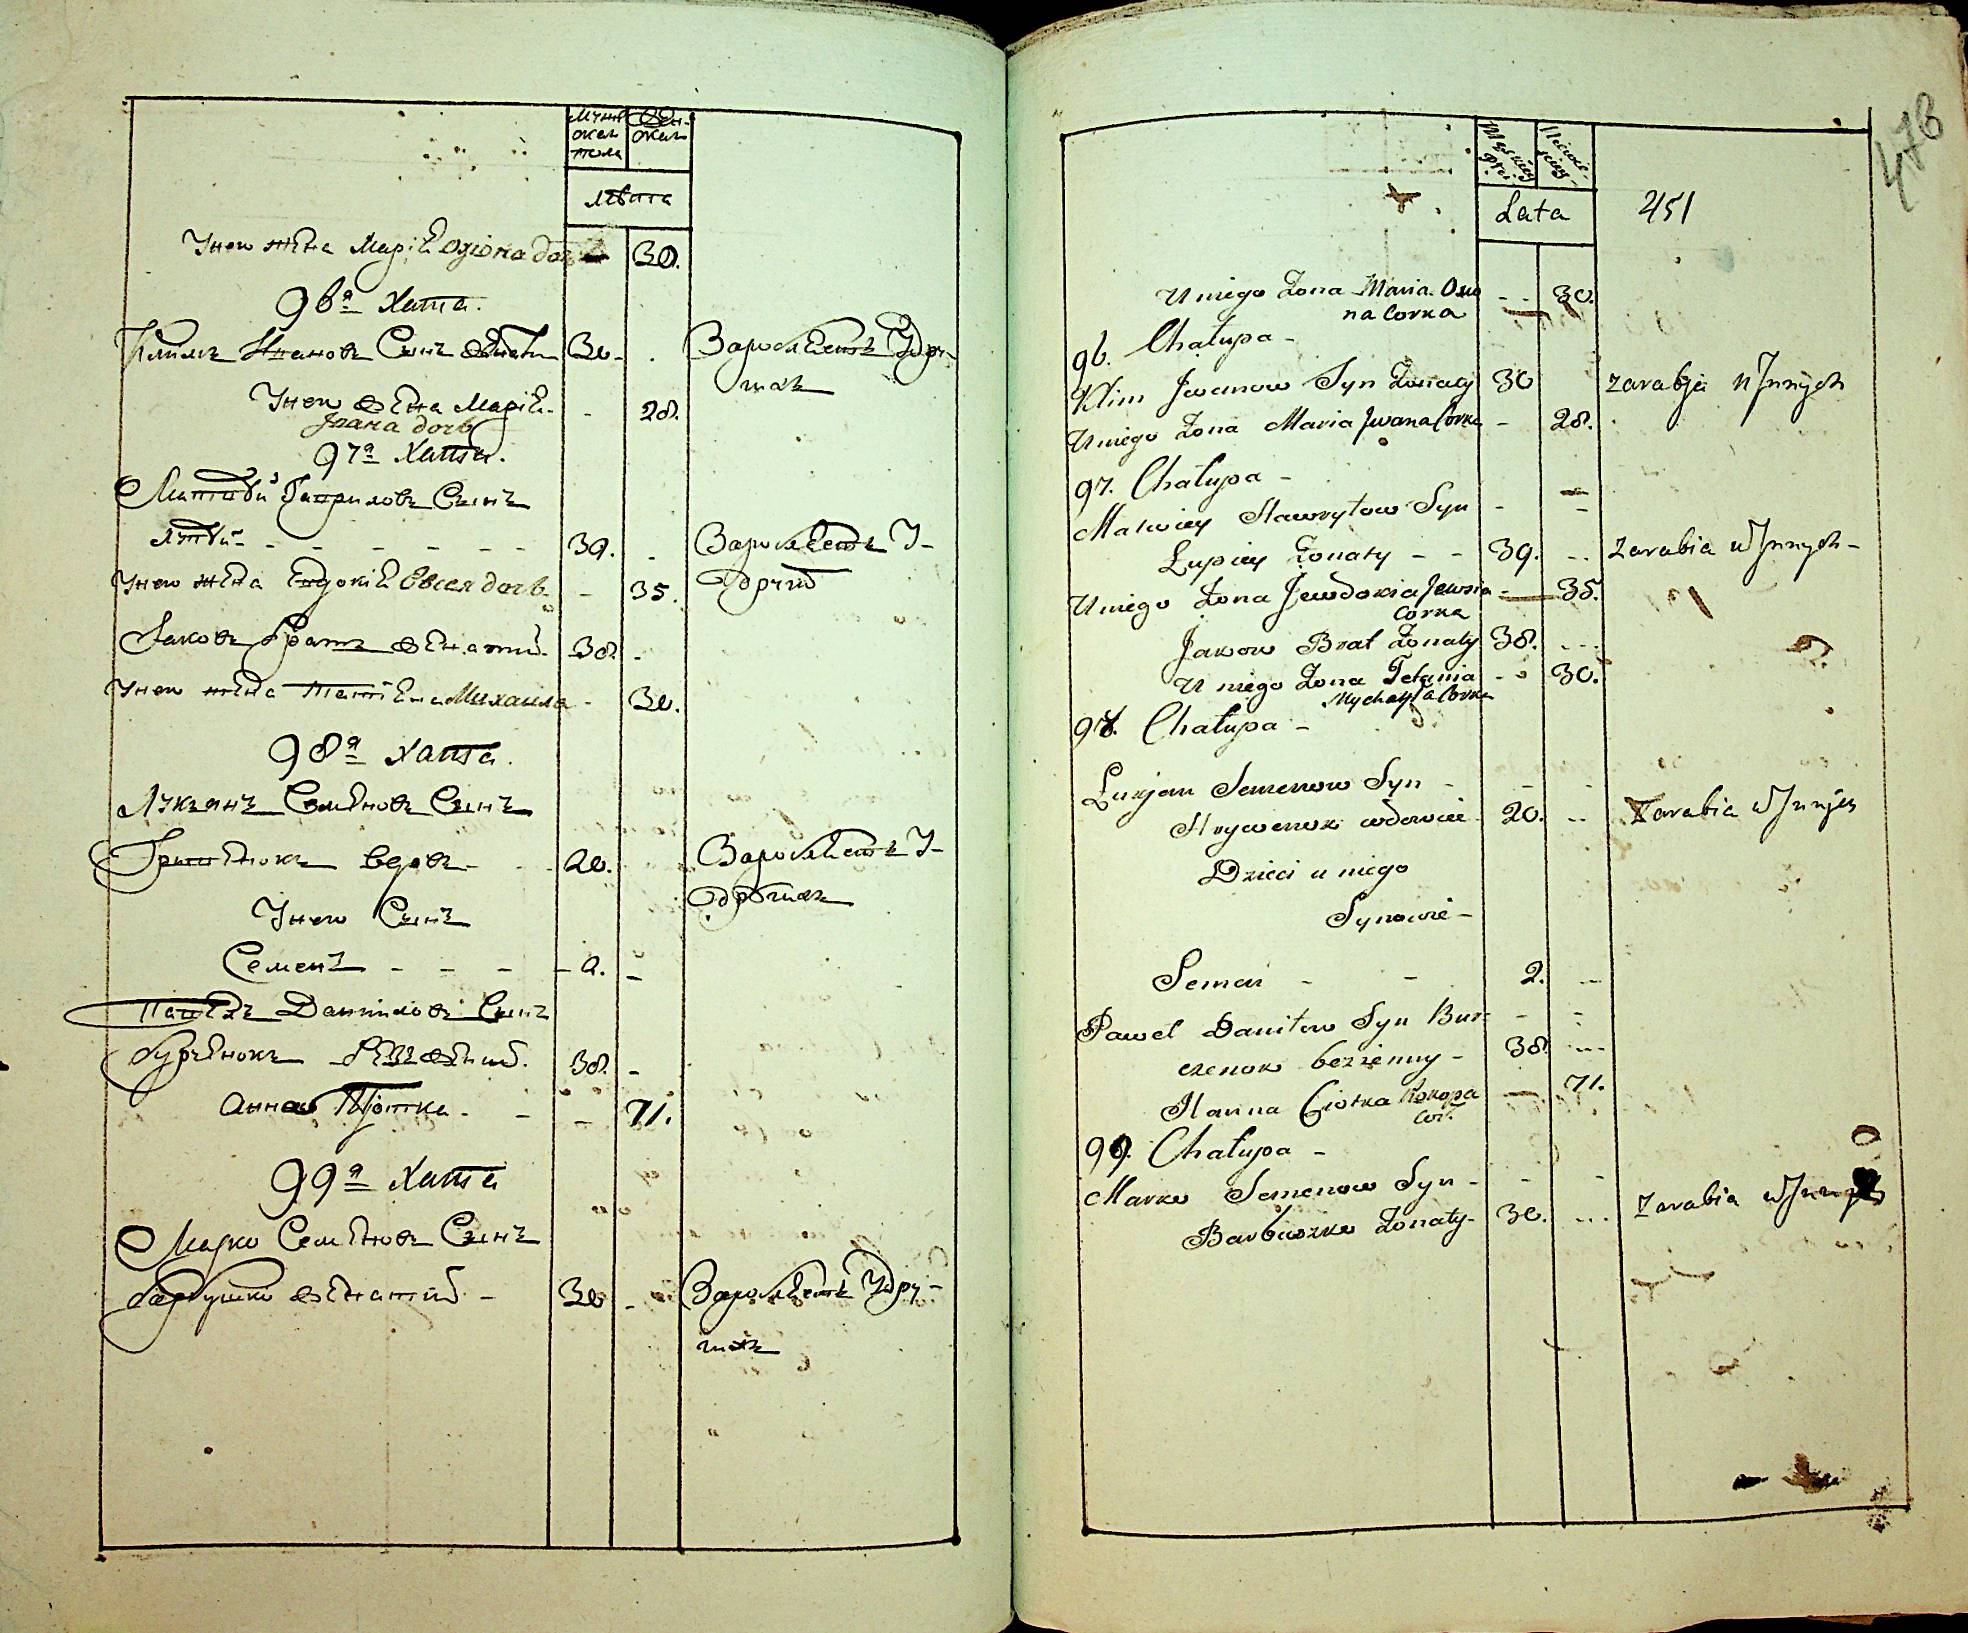 Мужеска пола
Женска
Лѣта
У него жена Марія Осіона дочь 30.
96я Хата.
Климъ Ивановъ Сынъ женатъ 30. Зароблаетъ У дру-
гихъ
У него жена Марія - 28.
Ивана дочь
97я Хата.
Матвѣй Гавриловъ Сынъ
39. - Зароблаетъ У-
другихъ
У него жена Евдокія Овсея дочь - 35.
Яковъ Братъ женатий 38. -
У него жена Татіяна Михаила - 30.
98я Хата.
Лукьянъ Семеновъ Сынъ
вдовъ - 20. Зароблаетъ У-
другихъ
У него Сынъ
Семенъ - - - - 2. -
Павелъ Даниловъ Сынъ
38. -
Анна Тіотка - - - 71.
99я Хата
Марко Семеновъ Сынъ
Барбушко женатий - 30 - Зароблаетъ У дру-
гихъ
476
Męskiey Płci
Lata 451
U niego Żona Maria Osio - - 30.
na Corka
96. Chałupa -
Klim Jwanow Syn Żonaty 30 zarabja u Jnnych
U niego Żona Maria Jwana Corka - 28.
97. Chałupa -
Matwiey Hawryłow Syn - -
Łupiey Żonaty - - 39. - zarabia u Jnnych -
U niego Żona Jewdokia Jewsia - 35.
Corka
Jakow Brat Żonaty 38. - -
U niego Żona Tetania - - 30.
Mychayła Corka
98. Chałupa -
Łukjan Semenow Syn - - -
Hrycenok wdowiec 20. - Zarabia u Jnnych
Dzieci u niego
Synowie -
Semen - - 2. -
Paweł Daniłow Syn Bur- - -
czenok bezżenny - 38 -
Hanna Ciotka Prokopa - 71.
Cor.
99. Chałupa -
Marko Semenow Syn - - -
Barbuszko Żonaty - 30. - zarabia u Jnnych